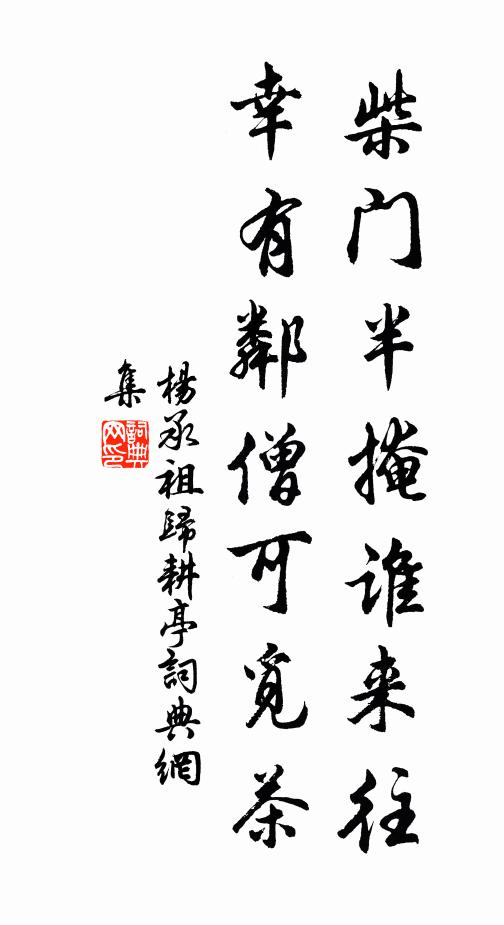 柴门半掩谁来往
幸有鄰僧可覓茶
楊承祖歸耕亭詞典網
集
詞典
网印